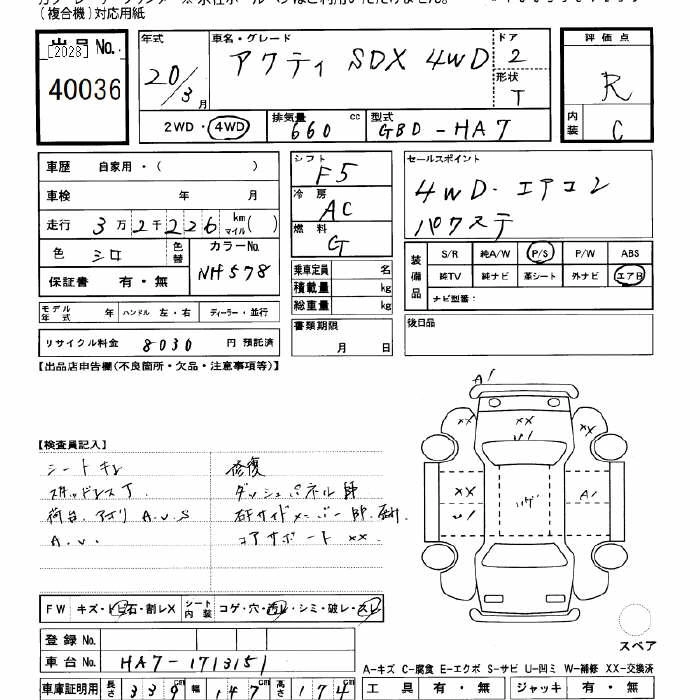 (複合機)対応用紙
出品 No.
[2028]
40036
年式
20/3 月
車名・グレード
アクティ SDX 4WD
ドア
2
形状
T
2WD・4WD
排気量 660 cc
型式 GBD-HA7
評価点
R
内装 C
車歴 自家用・( )
車検 年 月
走行 3万2千226 km マイル( )
色 シロ
色替
カラーNo.
NH578
保証書 有・無
モデル年式 年 ハンドル 左・右 ディーラー・並行
リサイクル料金 8030 円 預託済
シフト
F5
冷房
AC
燃料
G
乗車定員 名
積載量 kg
総重量 kg
書類期限
月 日
セールスポイント
4WD・エアコン
パワステ
装備品
S/R 純A/W P/S P/W ABS
純TV 純ナビ 革シート 外ナビ エアB
ナビ型番:
後日品
【出品店申告欄(不良箇所・欠品・注意事項等)】
【検査員記入】
シートキレ
荷台、アオリ A.U.S
A.U.
修復
ダッシュパネル
コアサポート XX.
A1
XX
XX
XX
U1
XX
U1
A1
スペア
FW キズ・トビ石・割レX シート内装 コゲ・穴・汚レ・シミ・破レ・スレ
登録 No.
車台 No. HA7-1713151
車庫証明用 長さ 339cm 幅 147cm 高さ 174cm
A-キズ C-腐食 E-エクボ S-サビ U-凹ミ W-補修 XX-交換済
工具 有・無 ジャッキ 有・無